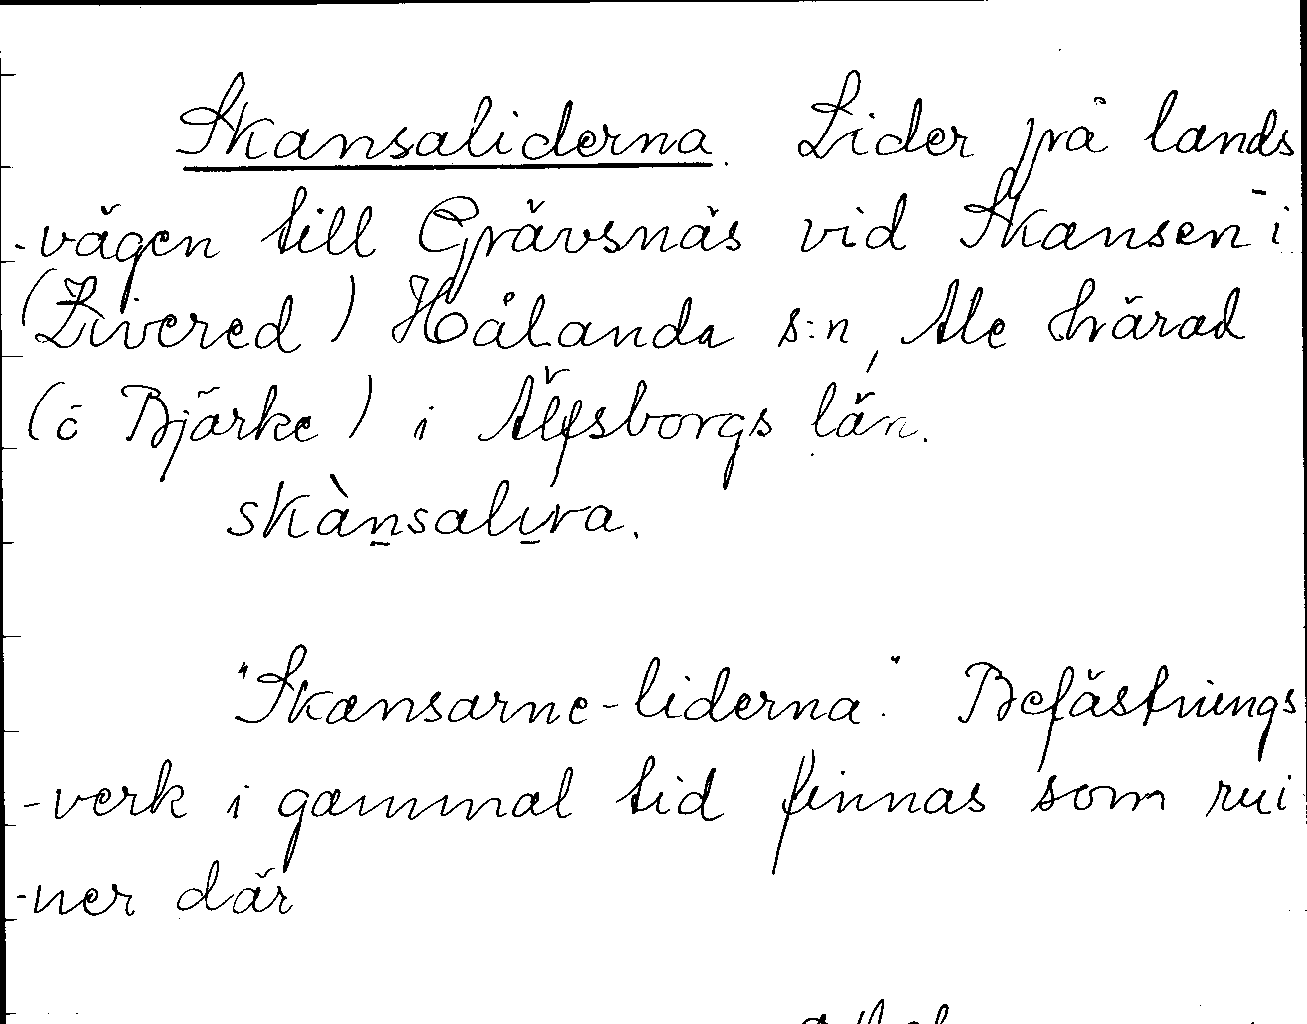 Skansaliderna. Lider på lands
-vägen till Grävsnäs vid Skansen i
(Livered) Hålanda s:n, Ale härad
(ö Bjärke) i Älfsborgs län.
skànsalıra.
"Skansarne-liderna." Befästnings
-verk i gammal tid finnas som rui
-ner där